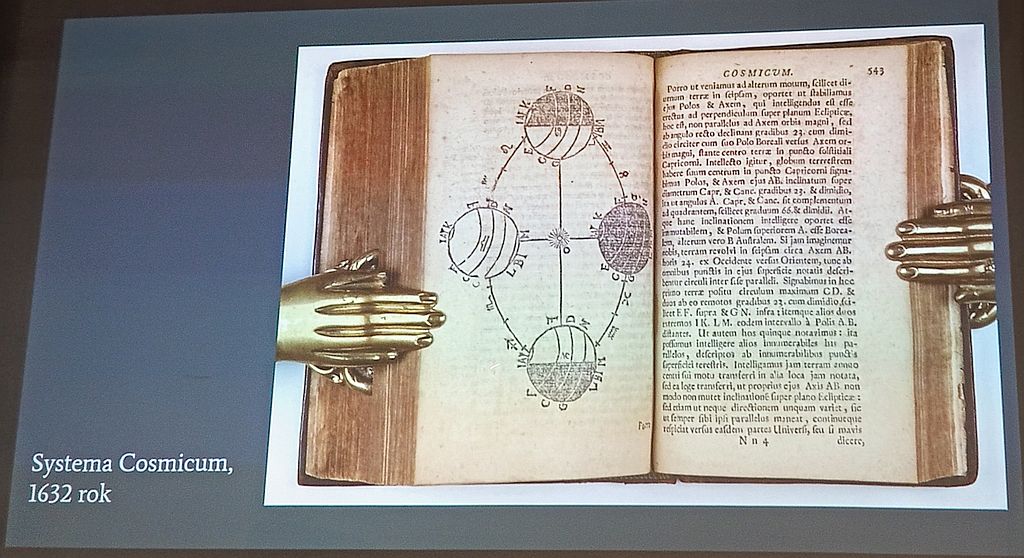 COSMICUM. 543
Porro ut veniamus ad alterum motum, scilicet di-
urnum terræ in seipsam, oportet ut stabiliamus
ejus Polos & Axem, qui intelligendus est esse
erectus ad perpendiculum super planum Eclipticæ,
hoc est, non parallelus ad Axem orbis magni, sed
ab angulo recto declinans gradibus 23. cum dimi-
dio circiter cum suo Polo Boreali versus Axem or-
bis magni, stante centro terræ in puncto solstitiali
Capricorni. Intellecto igitur, globum terrestrem
habere suum centrum in puncto Capricorni signa-
bimus Polos, & Axem ejus AB. inclinatum super
diametrum Capr. & Canc. gradibus 23. & dimidio,
ita ut angulus A. Capr. & Canc. sit complementum
ad quadrantem, scilicet graduum 66. & dimidii. At-
que hanc inclinationem intelligere oportet esse
immutabilem, & Polum superiorem A. esse Borea-
lem, alterum vero B Australem. Si jam imaginemur
nobis, terram revolvi in seipsam circa Axem AB.
horis 24. ex Occidente versus Orientem, tunc ab
omnibus punctis in ejus superficie notatis descri-
bentur circuli inter se paralleli. Signabimus in hoc
primo terræ positu circulum maximum CD. &
duos ab eo remotos gradibus 23. cum dimidio, sci-
licet E F. supra & G N. infra: itemque alios duos
extremos I K. L M. eodem intervallo à Polis A.B.
distantes. Ut autem hos quinque notarimus: ita
possumus intelligere alios innumerabiles his pa-
rallelos, descriptos ab innumerabilibus punctis
superficiei terrestris. Intelligamus jam terram annuo
centri sui motu transferri in alia loca jam notata,
sed ea lege transferri, ut proprius ejus Axis AB. non
modo non mutet inclinationē super plano Eclipticæ:
sed etiam ut neque directionem unquam variet, sic
ut semper sibi ipsi parallelus maneat, continueque
respiciat versus easdem partes Universi, seu si mavis
N n 4 dicere,
Systema Cosmicum,
1632 rok